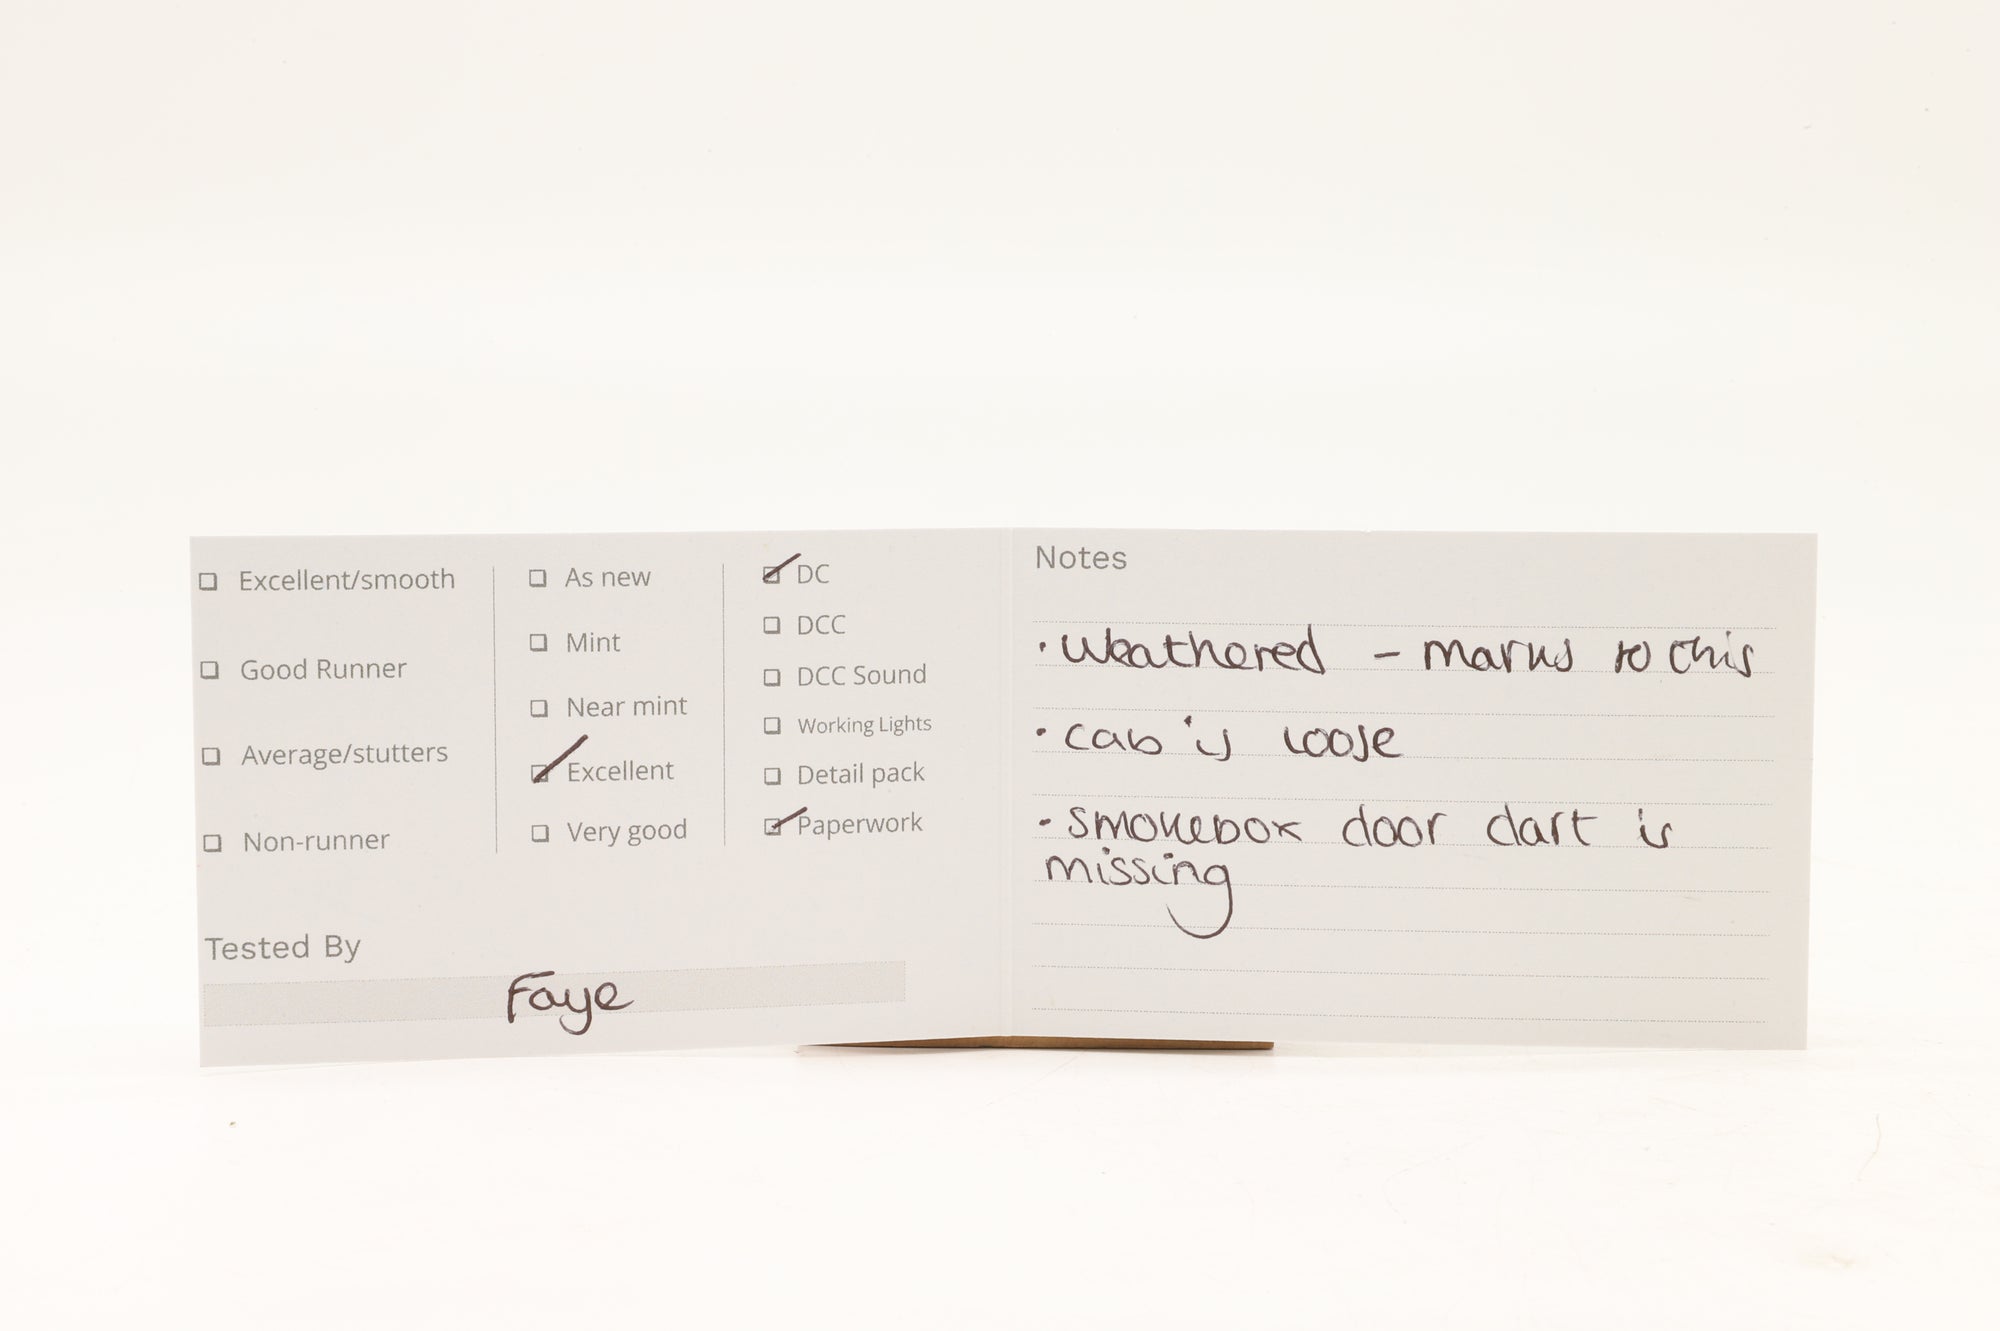 Excellent/smooth
Good Runner
Average/stutters
Non-runner
As new
Mint
Near mint
Excellent
Very good
DC
DCC
DCC Sound
Working Lights
Detail pack
Paperwork
Tested By
Faye
Notes
· Weathered - marks to this
· cab is loose
· smokebox door dart is
missing